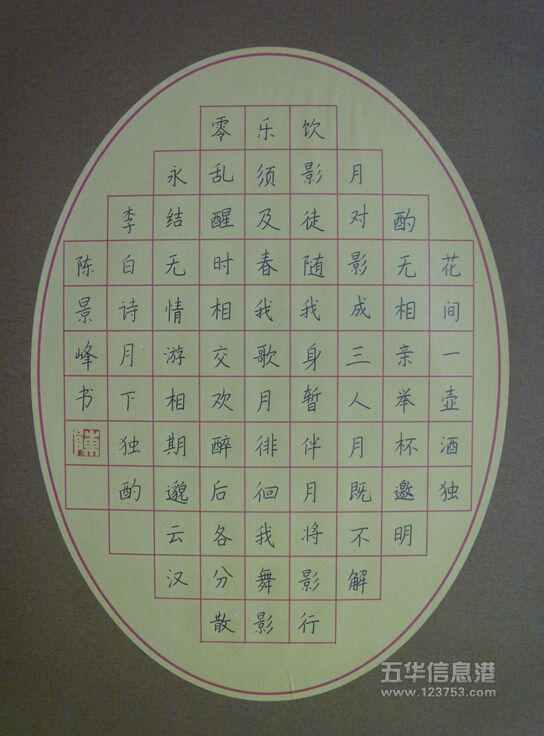 花间一壶酒独
酌无相亲举杯邀明
月对影成三人月既不解
饮影徒随我身暂伴月将影行
乐须及春我歌月徘徊我舞影
零乱醒时相交欢醉后各分散
永结无情游相期邈云汉
李白诗月下独酌
陈景峰书
五华信息港
www.123753.com